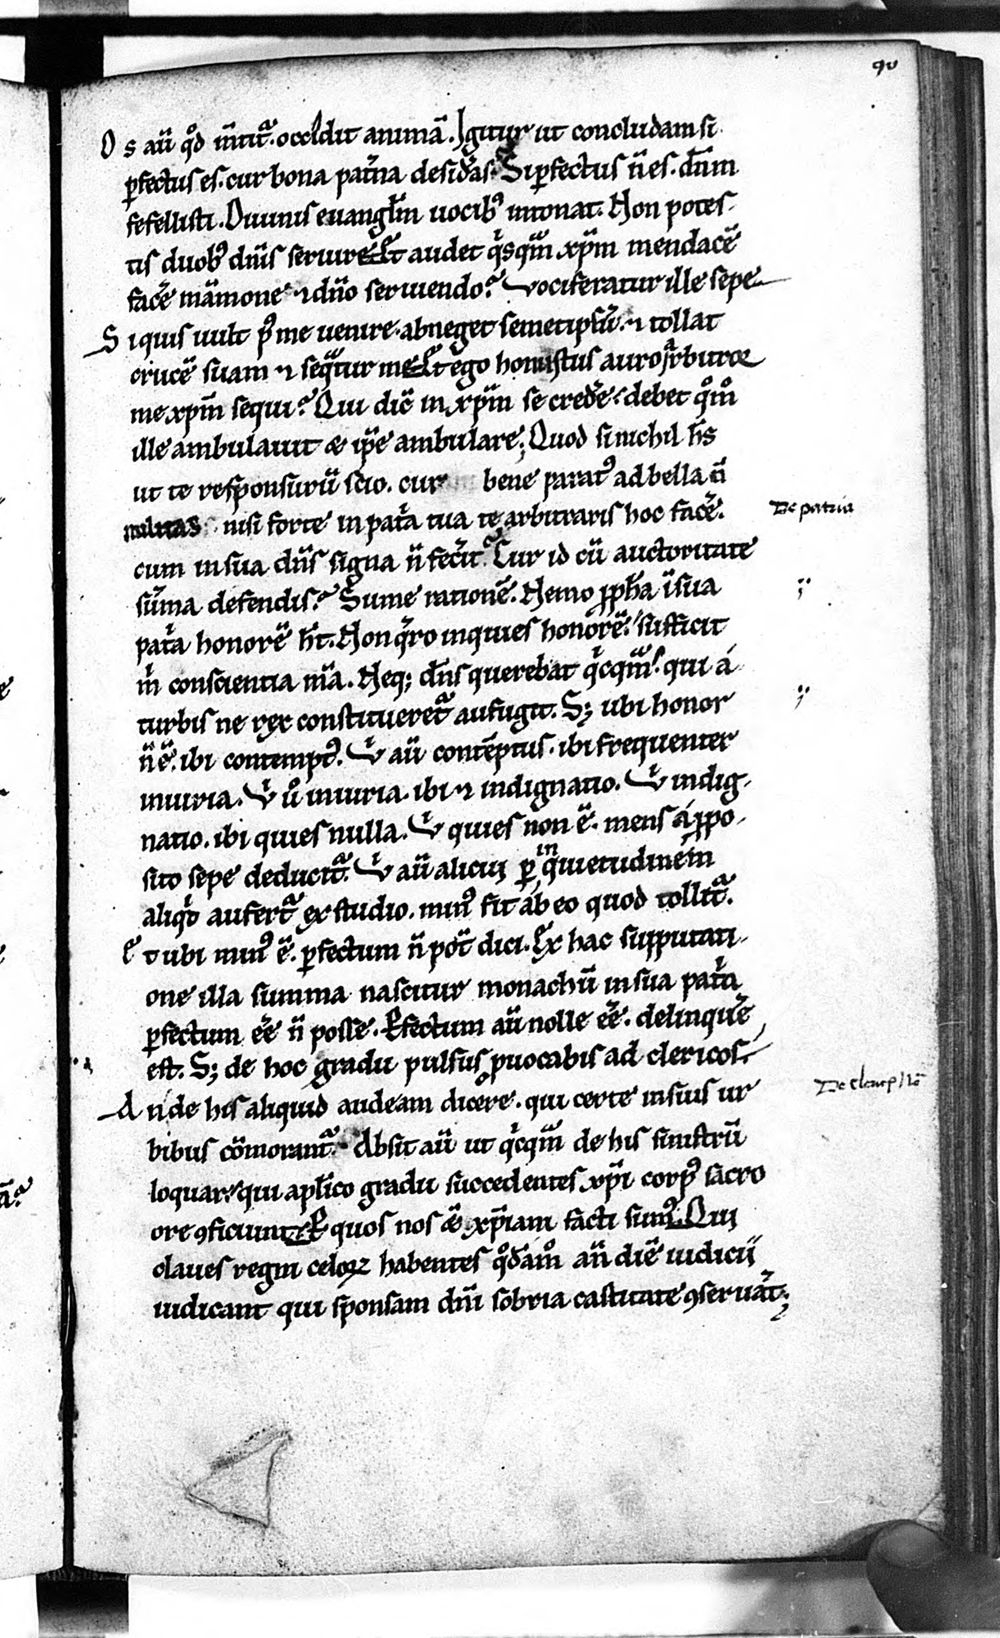 qu
Os aū q͛d mtit᷑. occidit animā. Igitur ut concludam si
ꝑfectus es. cur bona pat͛na desid͛as. Si ꝑfectus ñ es. dn̄m
fefellisti. Diuinis euangl̄m uocibꝰ intonat. Non potes-
tis duobꝰ dn̄is seruire. Et audet q͛sq̄m xp̄m mendacē
fac͛e māmone ⁊ dn̄o seruiendo? Vociferatur ille sepe
Siquis uult p̄ me uenire. abneget semetipsū. ⁊ tollat
crucē suam ⁊ seq̄tur me. Et ego honustus auro arbitror
me xp̄m sequi? Qui dic̄ in xp̄m se cred͛e. debet q͛m̊
ille ambulauit & ip̄e ambulare; Quod si nichil h̄s
ut te responsurū scio. cur bene paratꝰ ad bella ñ
militas nisi forte in pat͛a tua te arbitraris hoc fac͛e.
cum in sua dn̄s signa ñ fec͛it? Cur id cū auctoritate
sūma defendis? Sume rationē. Nemo ꝓph̄a ī sua
pat͛a honorē h̄t. Non q͛ro inquies honorē. sufficit
m͛ conscientia m̄a. Neq; dn̄s querebat q͛cq̄m. qui á
turbis ne rex constitueret᷑ aufugit. S; ubi honor
ñ ē. ibi contemptꝰ. Vͥ aū contēptus. ibi frequenter
iniuria. Vͥ ů iniuria. ibi ⁊ indignatio. Vͥ indig-
natio. ibi quies nulla. Vͥ quies non ē. mens á ꝓpo-
sito sepe deducit᷑. Vͥ aū alicui ꝑ inquietudinem
aliq͛d aufert᷑ ex studio. minꝰ fit ab eo quod tollit᷑.
Et ubi minꝰ ē. ꝑfectum ñ pot̄ dici. Ex hac supputati-
one illa summa nascitur monachū in sua pat͛a
ꝑfectum ēe ñ posse. Ꝑfectum aū nolle ēe. delinqu͛e
est. S; de hoc gradu pulsus ꝓuocabis ad clericos.
An de his aliquid audeam dicere. qui certe in suis ur
bibus cōmorant᷑. Absit aū ut q͛cq̄m de his sinistrū
loquar. qui apl̄ico gradu succedentes xp̄i corpꝰ sacro
ore ꝯficiunt. Ꝑ quos nos & xp̄iani facti sumꝰ. Qui
claues regni celoꝝ habentes q͛dam̊ an̄ diē iudicii
iudicant qui sponsam dn̄i sobria castitate ꝯseruāt;
De patria